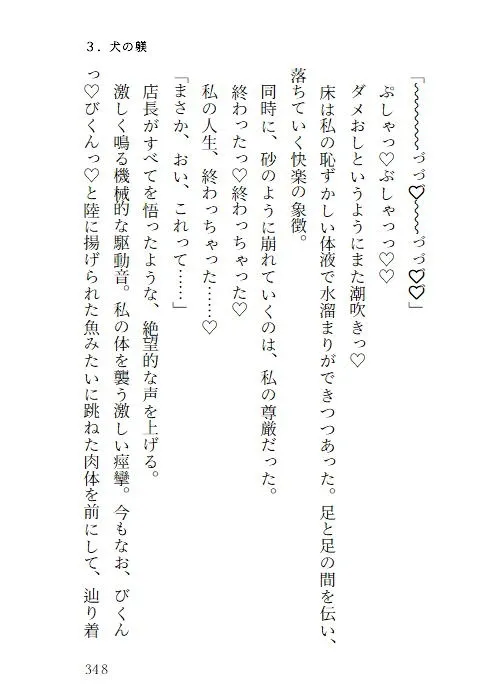 3．犬の躾
「～～～～～づづ♡～～づづ♡♡」
ぷしゃっ♡ぶしゃっっ♡♡
ダメおしというようにまた潮吹きっ♡
床は私の恥ずかしい体液で水溜まりができつつあった。足と足の間を伝い、
落ちていく快楽の象徴。
同時に、砂のように崩れていくのは、私の尊厳だった。
終わったっ♡終わっちゃった♡
私の人生、終わっちゃった……♡
「まさか、おい、これって……」
店長がすべてを悟ったような、絶望的な声を上げる。
激しく鳴る機械的な駆動音。私の体を襲う激しい痙攣。今もなお、びくん
っ♡びくんっ♡と陸に揚げられた魚みたいに跳ねた肉体を前にして、辿り着
348